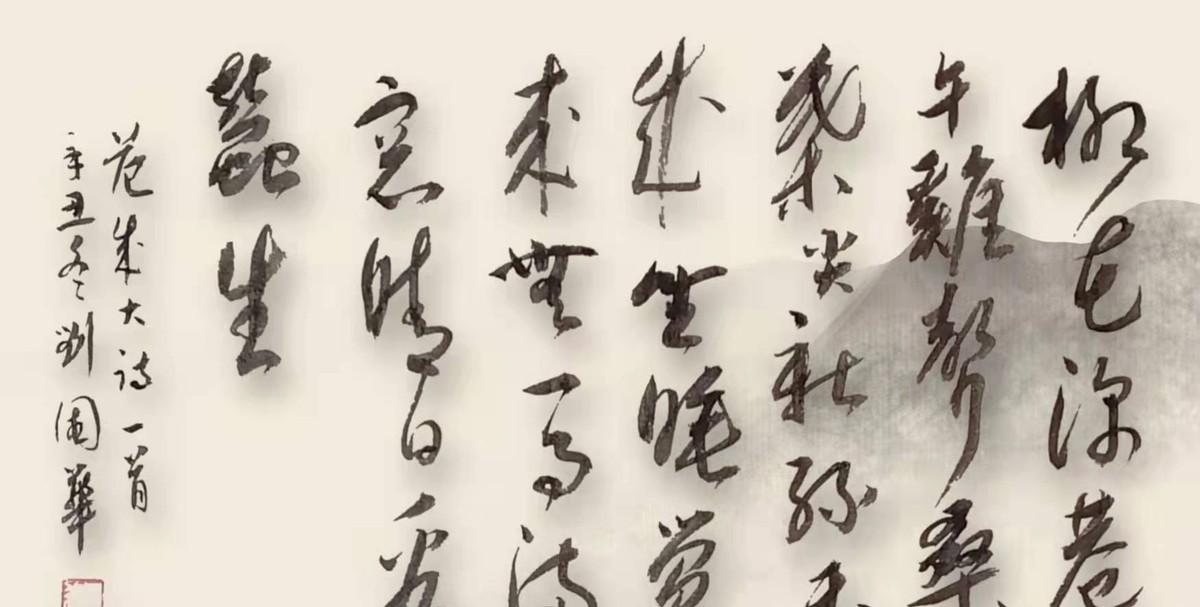 柳花深巷
午雞聲桑
葉尖新綠未
成坐睡覺
來無一事滿
窗晴日看
蠶生
范成大詩一首
辛丑冬劉國華